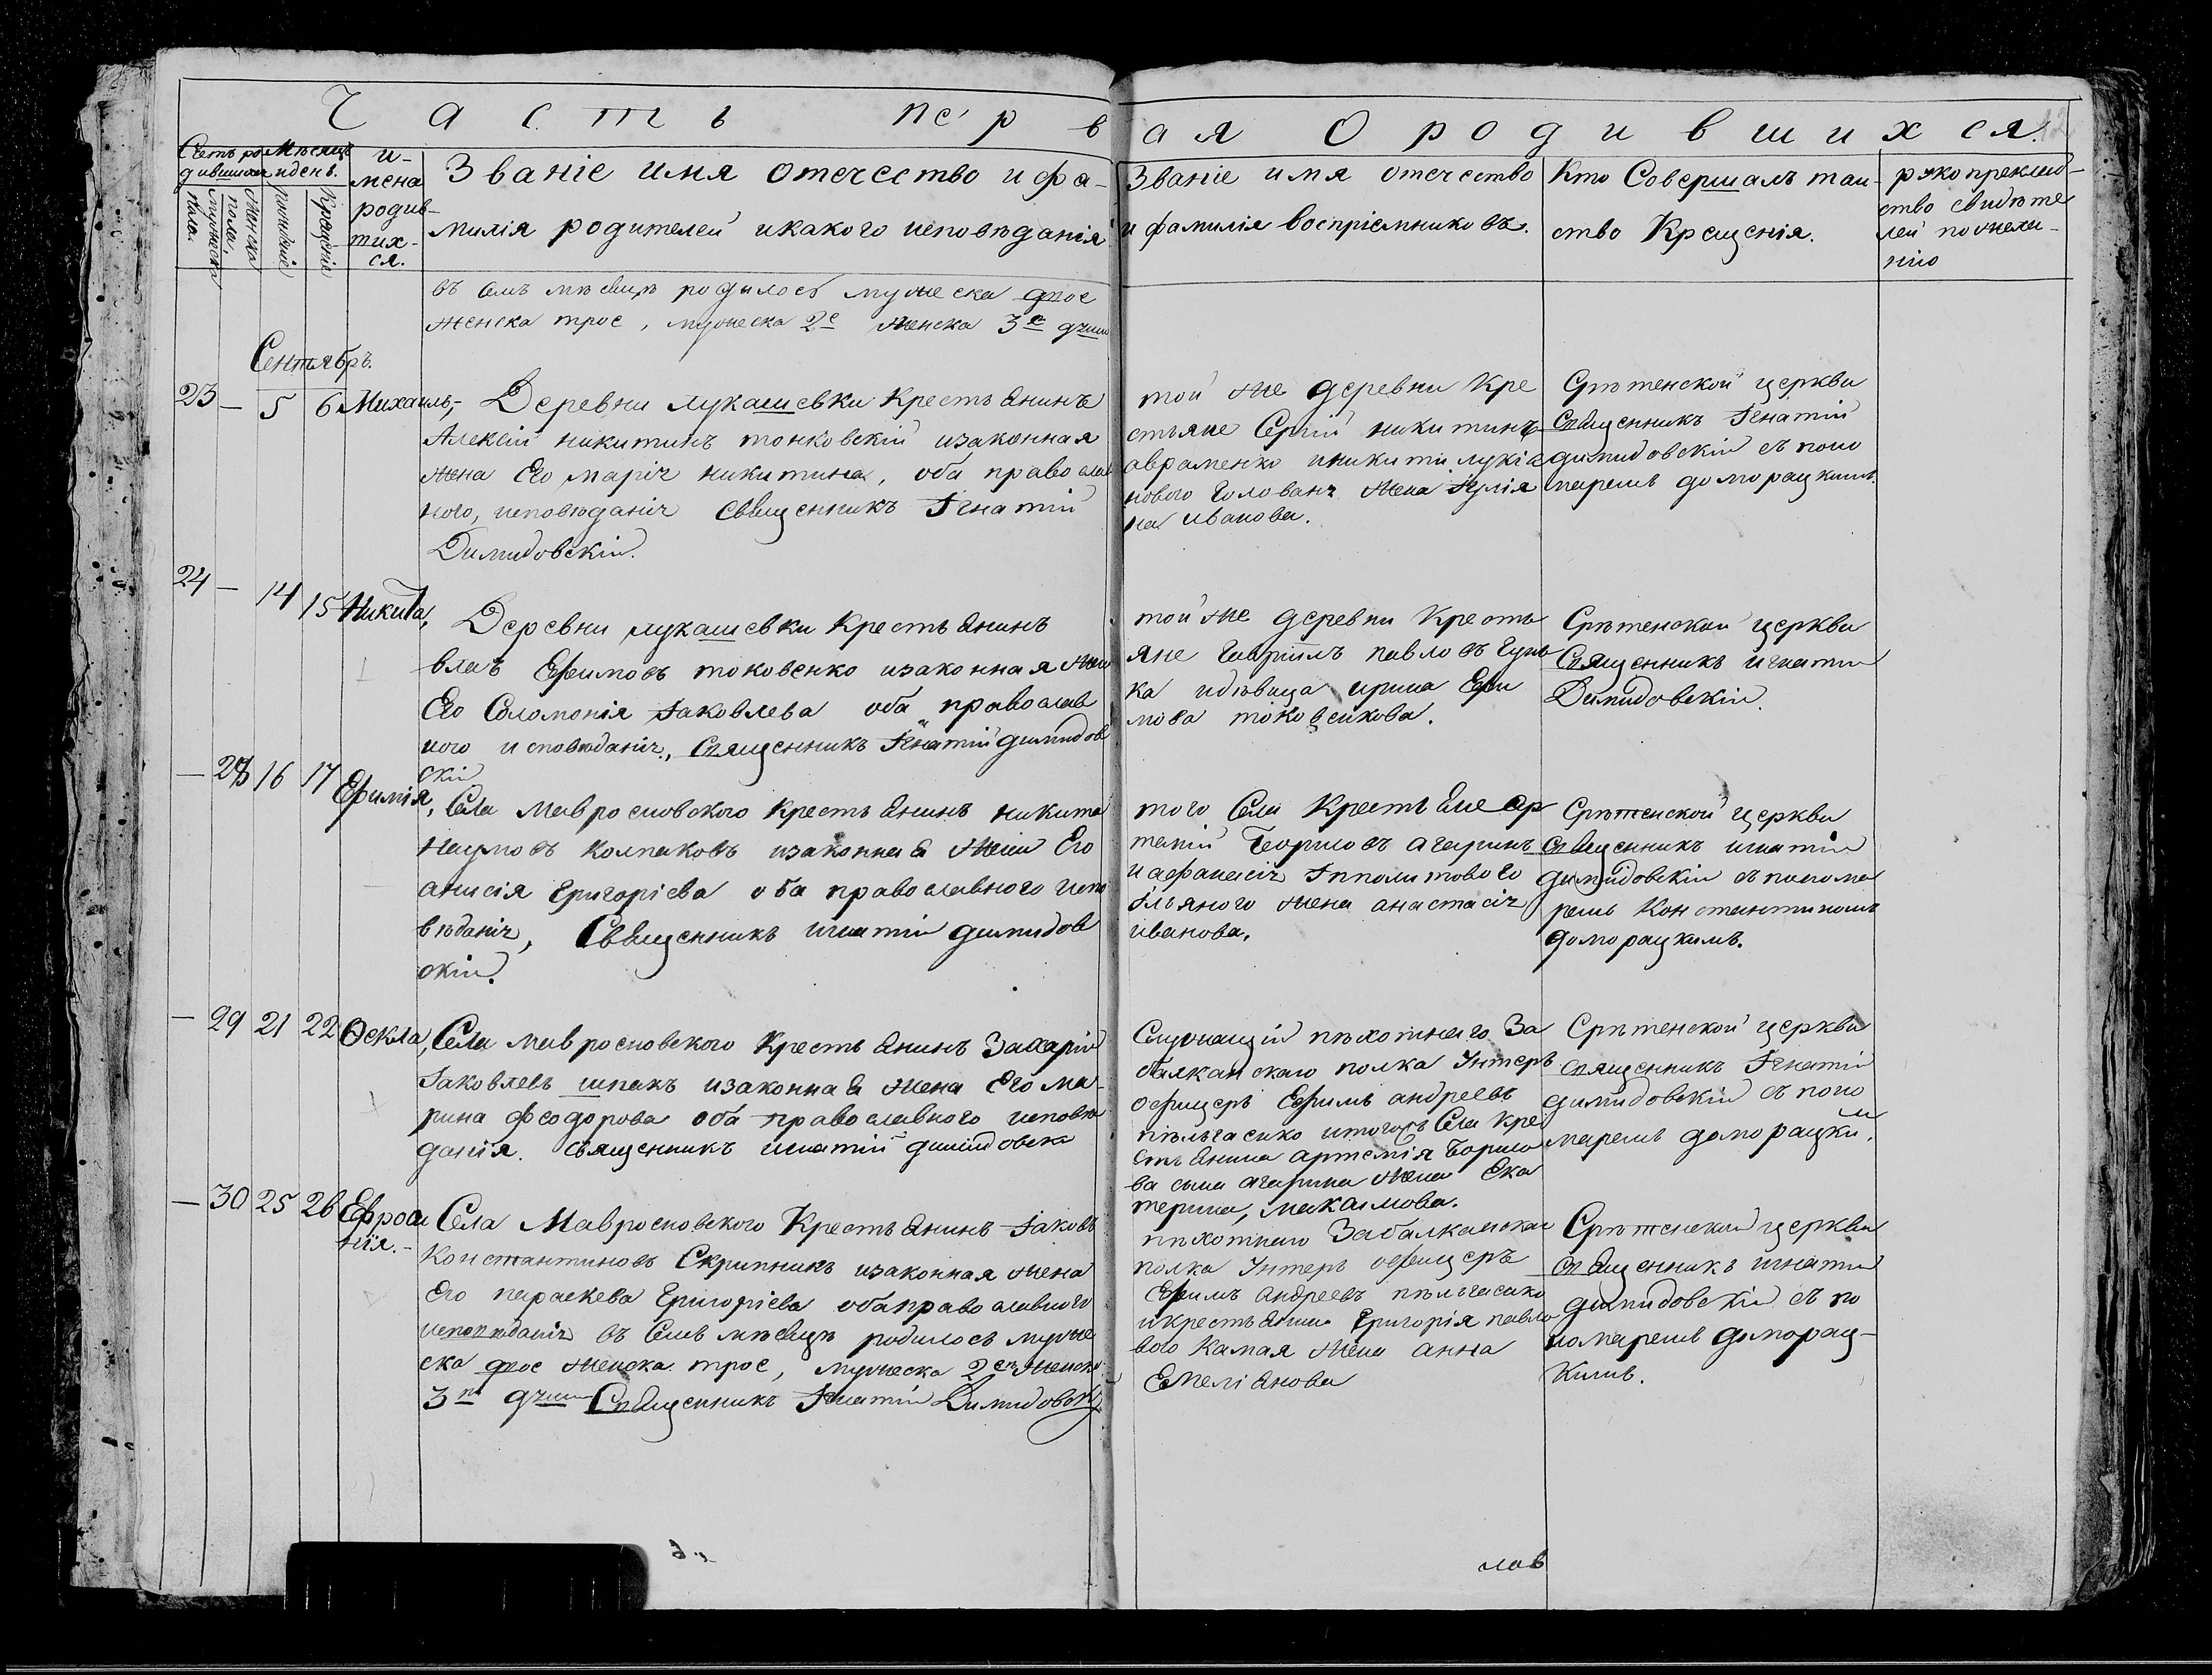 Часть первая О родившихся.
Счетъ родившихся
Мѣсяцъ и день.
мужеска пола.
женска
рожденіе
Крещеніе
и-
мена
родив-
шихся.
Званіе имя отечество и фа-
милія родителей и какого исповѣданія
Званіе имя отечество
и фамилія воспріемниковъ.
Кто Совершалъ таин-
ство Крещенія.
рукоприклад-
ство свидѣте
лей по жела-
нію
въ семъ мѣсяцѣ родилось мужеска двое
женска трое, мужеска 2е женска 3е душ
Сентябрь.
23 — 5 6 Михаилъ,
Деревни лукашевки Крестьянинъ
Алексій никитинъ тонковскій изаконная
жена Его марія никитина, оба православ
ного, исповѣданія Священникъ Ігнатій
Димидовскій.
той же деревни Кре
стьяне Сергій никитинъ
авраменко и никити лукіа
нового Голована жена Іулія
на иванова.
Срѣтенской церкви
Священникъ Ігнатій
димидовскій съ поно
маремъ доморацкимъ.
24 — 14 15 Никита,
Деревни лукашевки Крестьянинъ
власъ Ефимовъ токовенко изаконная жена
Его Соломонія Іаковлева оба православ
ного исповѣданія, Священникъ Ігнатій димидов
скій
той же деревни Кресть
яне Гавріилъ павловъ
ка идѣвица ирина Ефи
мова токовенкова.
Срѣтенской церкви
Священникъ игнатій
Димидовскій.
— 28 16 17 Ефимія,
Села Мавросновского Крестьянинъ никита
Наумовъ колпаковъ изаконная жена Его
анисія Григоріева оба православного испо
вѣданія, Священникъ игнатій димидов
скій.
того Села Крестьяне ар
темій Борисовъ агаринъ
и афанасія Ипполитового
Ільяного жена анастасія
иванова.
Срѣтенской церкви
священникъ игнатій
димидовскій съ понома
ремъ Константиномъ
доморацкимъ.
— 29 21 22 Ѳекла,
Села мавросновского Крестьянинъ Захарій
Іаковлевъ шпакъ изаконная жена Его ма-
рина феодорова оба православного исповѣ
данія. священникъ игнатій димидовск
Служащій пѣхотнаго За
балканскаго полка Унтеръ
офицеръ Ефимъ андреевъ
пѣльгасико итогожъ Села кре
стьянина артемія Борисо
ва сына агарина жена Ека
терина, максимова.
Срѣтенской церкви
священникъ Ігнатій
димидовскій съ поно
маремъ доморацки.
— 30 25 26 Ефроси
нія.-
Села Мавросновского Крестьянинъ Іаковъ
Константиновъ Скрипникъ изаконная жена
Его параскева Григоріева оба православного
исповѣданія въ Семъ мѣсяцѣ родилось муже
ска двое женска трое, мужеска 2е женска
3е душ Священникъ Ігнатій Димидовскій
пѣхотнаго Забалканскаг
полка Унтеръ офицеръ
Ефимъ андреевъ пѣльгасико
и крестьянина Григорія павло
вого Камая жена анна
Емеліянова
Срѣтенской церкви
священникъ игнатій
димидовскій съ по
номаремъ доморац-
кимъ.
лав